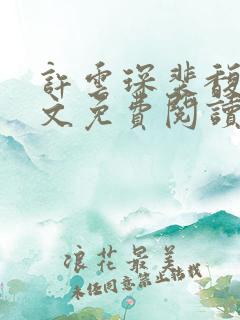 許雲琛裴馥
文免費閱讀
浪花最美
未經同意禁止轉載